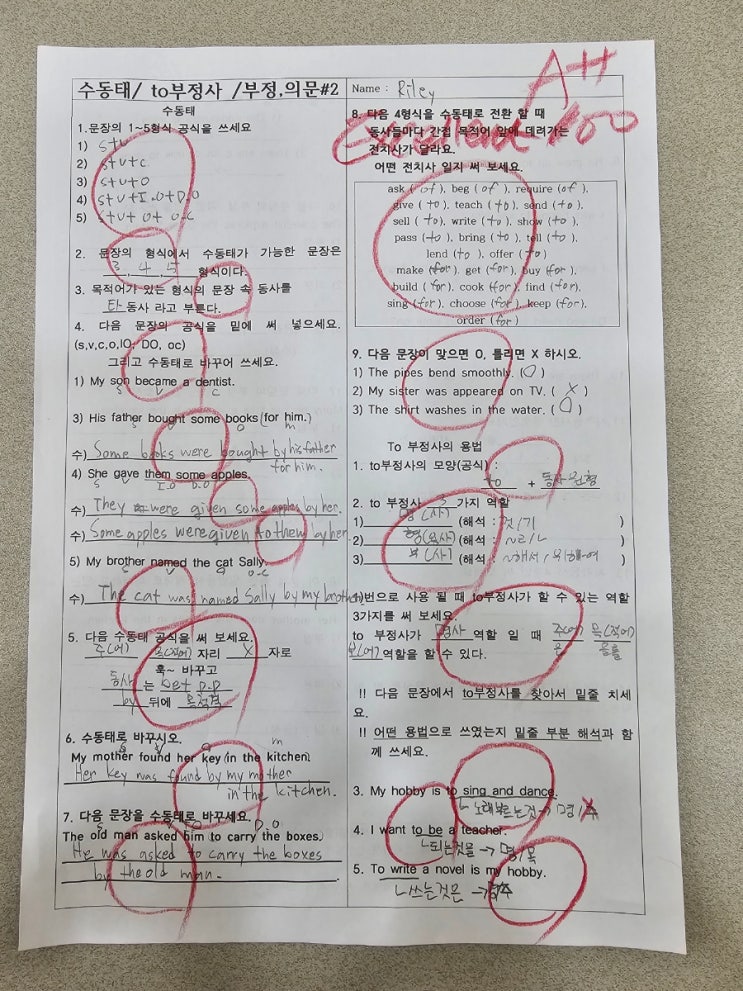 수동태/ to부정사 /부정,의문#2
Name : Riley
A++
Excellent 100
수동태
1.문장의 1~5형식 공식을 쓰세요
1) S+V
2) S+V+C
3) S+V+O
4) S+V+I.O+D.O
5) S+V+O+O.C
2. 문장의 형식에서 수동태가 가능한 문장은
3, 4, 5 형식이다.
3. 목적어가 있는 형식의 문장 속 동사를
타 동사 라고 부른다.
4. 다음 문장의 공식을 밑에 써 넣으세요.
(s,v,c,o,IO, DO, oc)
그리고 수동태로 바꾸어 쓰세요.
1) My son became a dentist.
S V C
3) His father bought some books (for him.)
S V O m
수) Some books were bought by his father
for him.
4) She gave them some apples.
S V I.O D.O
수) They were given some apples by her.
수) Some apples were given to them by her
5) My brother named the cat Sally.
S V O O.C
수) The cat was named Sally by my brother
5. 다음 수동태 공식을 써 보세요.
주(어) 목(적어) 자리 X 자로
훅~ 바꾸고
동사 는 be+p.p
by 뒤에 목적격
6. 수동태로 바꾸시오.
S V O m
My mother found her key (in the kitchen)
Her key was found by my mother
in the kitchen.
7. 다음 문장을 수동태로 바꾸세요.
The old man asked him to carry the boxes.
He was asked to carry the boxes
by the old man.
8. 다음 4형식을 수동태로 전환 할 때
동사들마다 간접 목적어 앞에 데려가는
전치사가 달라요.
어떤 전치사 일지 써 보세요.
ask ( of ), beg ( of ), require ( of ),
give ( to ), teach ( to ), send ( to ),
sell ( to ), write ( to ), show ( to ),
pass ( to ), bring ( to ), tell ( to ),
lend ( to ), offer ( to )
make (for), get (for), buy (for),
build (for), cook (for), find (for),
sing (for), choose (for), keep (for),
order (for)
9. 다음 문장이 맞으면 O, 틀리면 X 하시오.
1) The pipes bend smoothly. (O)
2) My sister was appeared on TV. ( X )
3) The shirt washes in the water. ( O )
To 부정사의 용법
1. to부정사의 모양(공식) :
to + 동사원형
2. to 부정사 3 가지 역할
1) 명(사) (해석 : 것/기 )
2) 형(용사) (해석 : ~ㄹ/ㄴ )
3) 부(사) (해석 : ~해서/위하여 )
1)번으로 사용 될 때 to부정사가 할 수 있는 역할
3가지를 써 보세요.
to 부정사가 명사 역할 일 때 주(어) 목(적어)
보(어) 역할을 할 수 있다. 은 을를
!! 다음 문장에서 to부정사를 찾아서 밑줄 치세
요.
!! 어떤 용법으로 쓰였는지 밑줄 부분 해석과 함
께 쓰세요.
3. My hobby is to sing and dance.
노래부르는것 → 명/
4. I want to be a teacher.
되는것을 → 명/목
5. To write a novel is my hobby.
쓰는것은 → 명/주